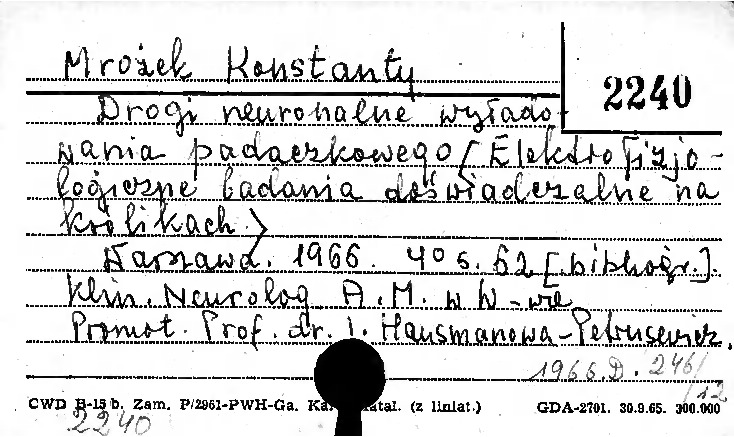 Mrożek Konstanty
2240
Drogi neuronalne wyłado-
wania padaczkowego (Elektrofizjo-
logiczne badania doświadczalne na
królikach.)
Warszawa. 1966. 40 s. 62 [bibliogr.].
Klin. Neurolog A.M. w W-wie
Promot. Prof. dr. I. Hausmanowa-Petrusewicz.
1966 D. 246/
/12
CWD B-15 b. Zam. P/2961-PWH-Ga. (z liniat.) GDA-2701. 30.9.65. 300.000
2240